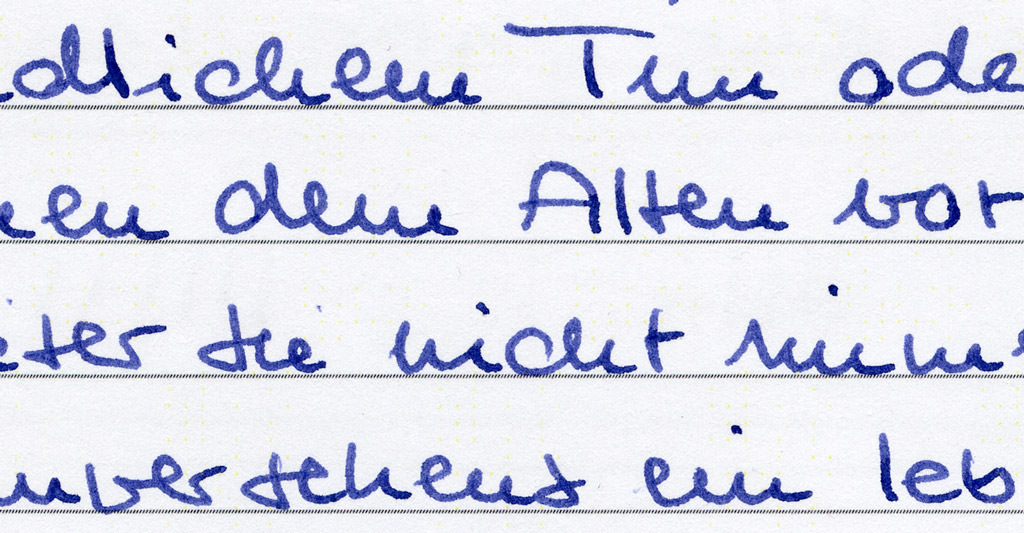 dlichem Tun ode
en dem Alten vor
ter sie nicht imme
nversehens ein leb